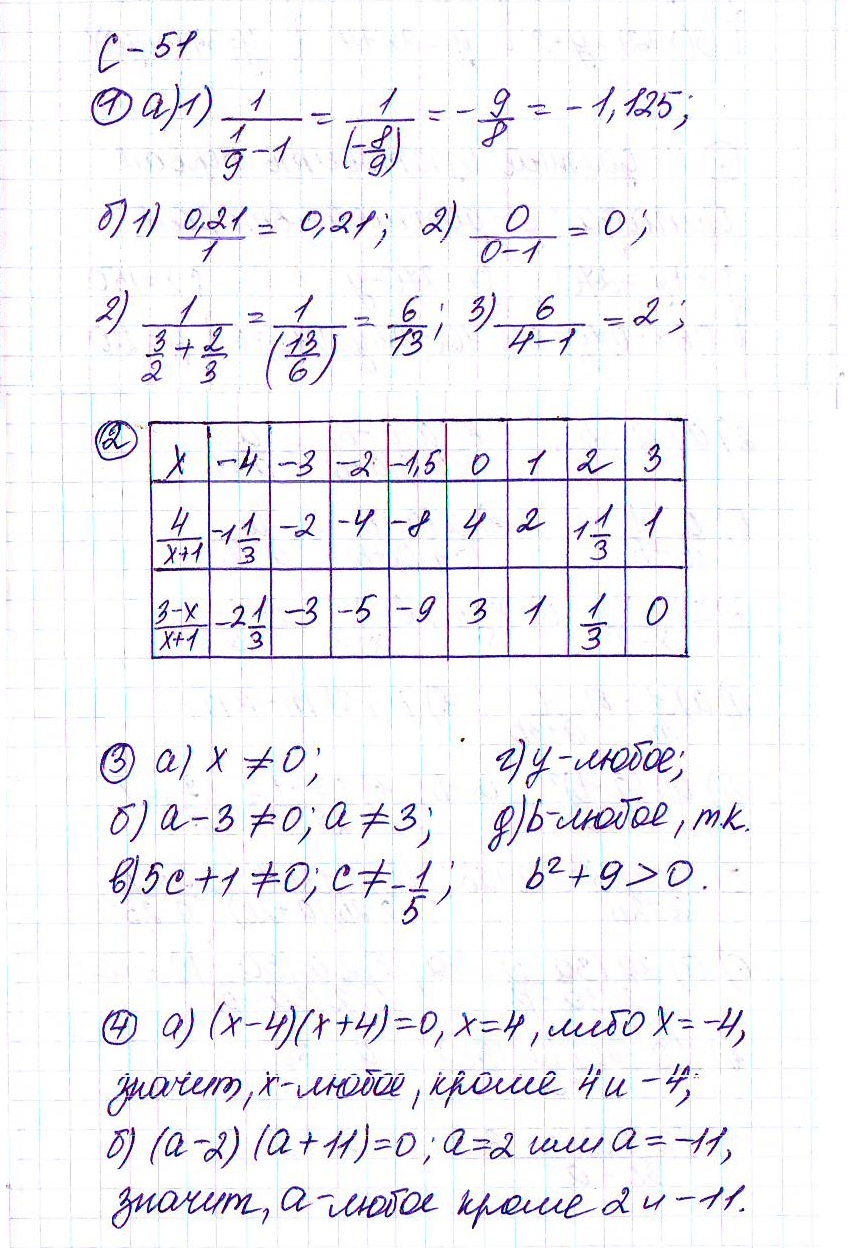 С-51
① а)1) 1/(1/9 - 1) = 1/(-8/9) = -9/8 = -1,125;
б)1) 0,21/1 = 0,21; 2) 0/(0-1) = 0;
2) 1/(3/2 + 2/3) = 1/(13/6) = 6/13; 3) 6/(4-1) = 2;
② x -4 -3 -2 -1,5 0 1 2 3
4/(x+1) -1 1/3 -2 -4 -8 4 2 1 1/3 1
(3-x)/(x+1) -2 1/3 -3 -5 -9 3 1 1/3 0
③ а) x ≠ 0; г) y-любое;
б) a-3 ≠ 0; a ≠ 3; д) b-любое, т.к.
в) 5c+1 ≠ 0; c ≠ -1/5; b²+9 > 0.
④ а) (x-4)(x+4)=0, x=4, либо x=-4,
значит, x-любое, кроме 4 и -4;
б) (a-2) (a+11)=0; a=2 или a=-11,
значит, a-любое кроме 2 и -11.